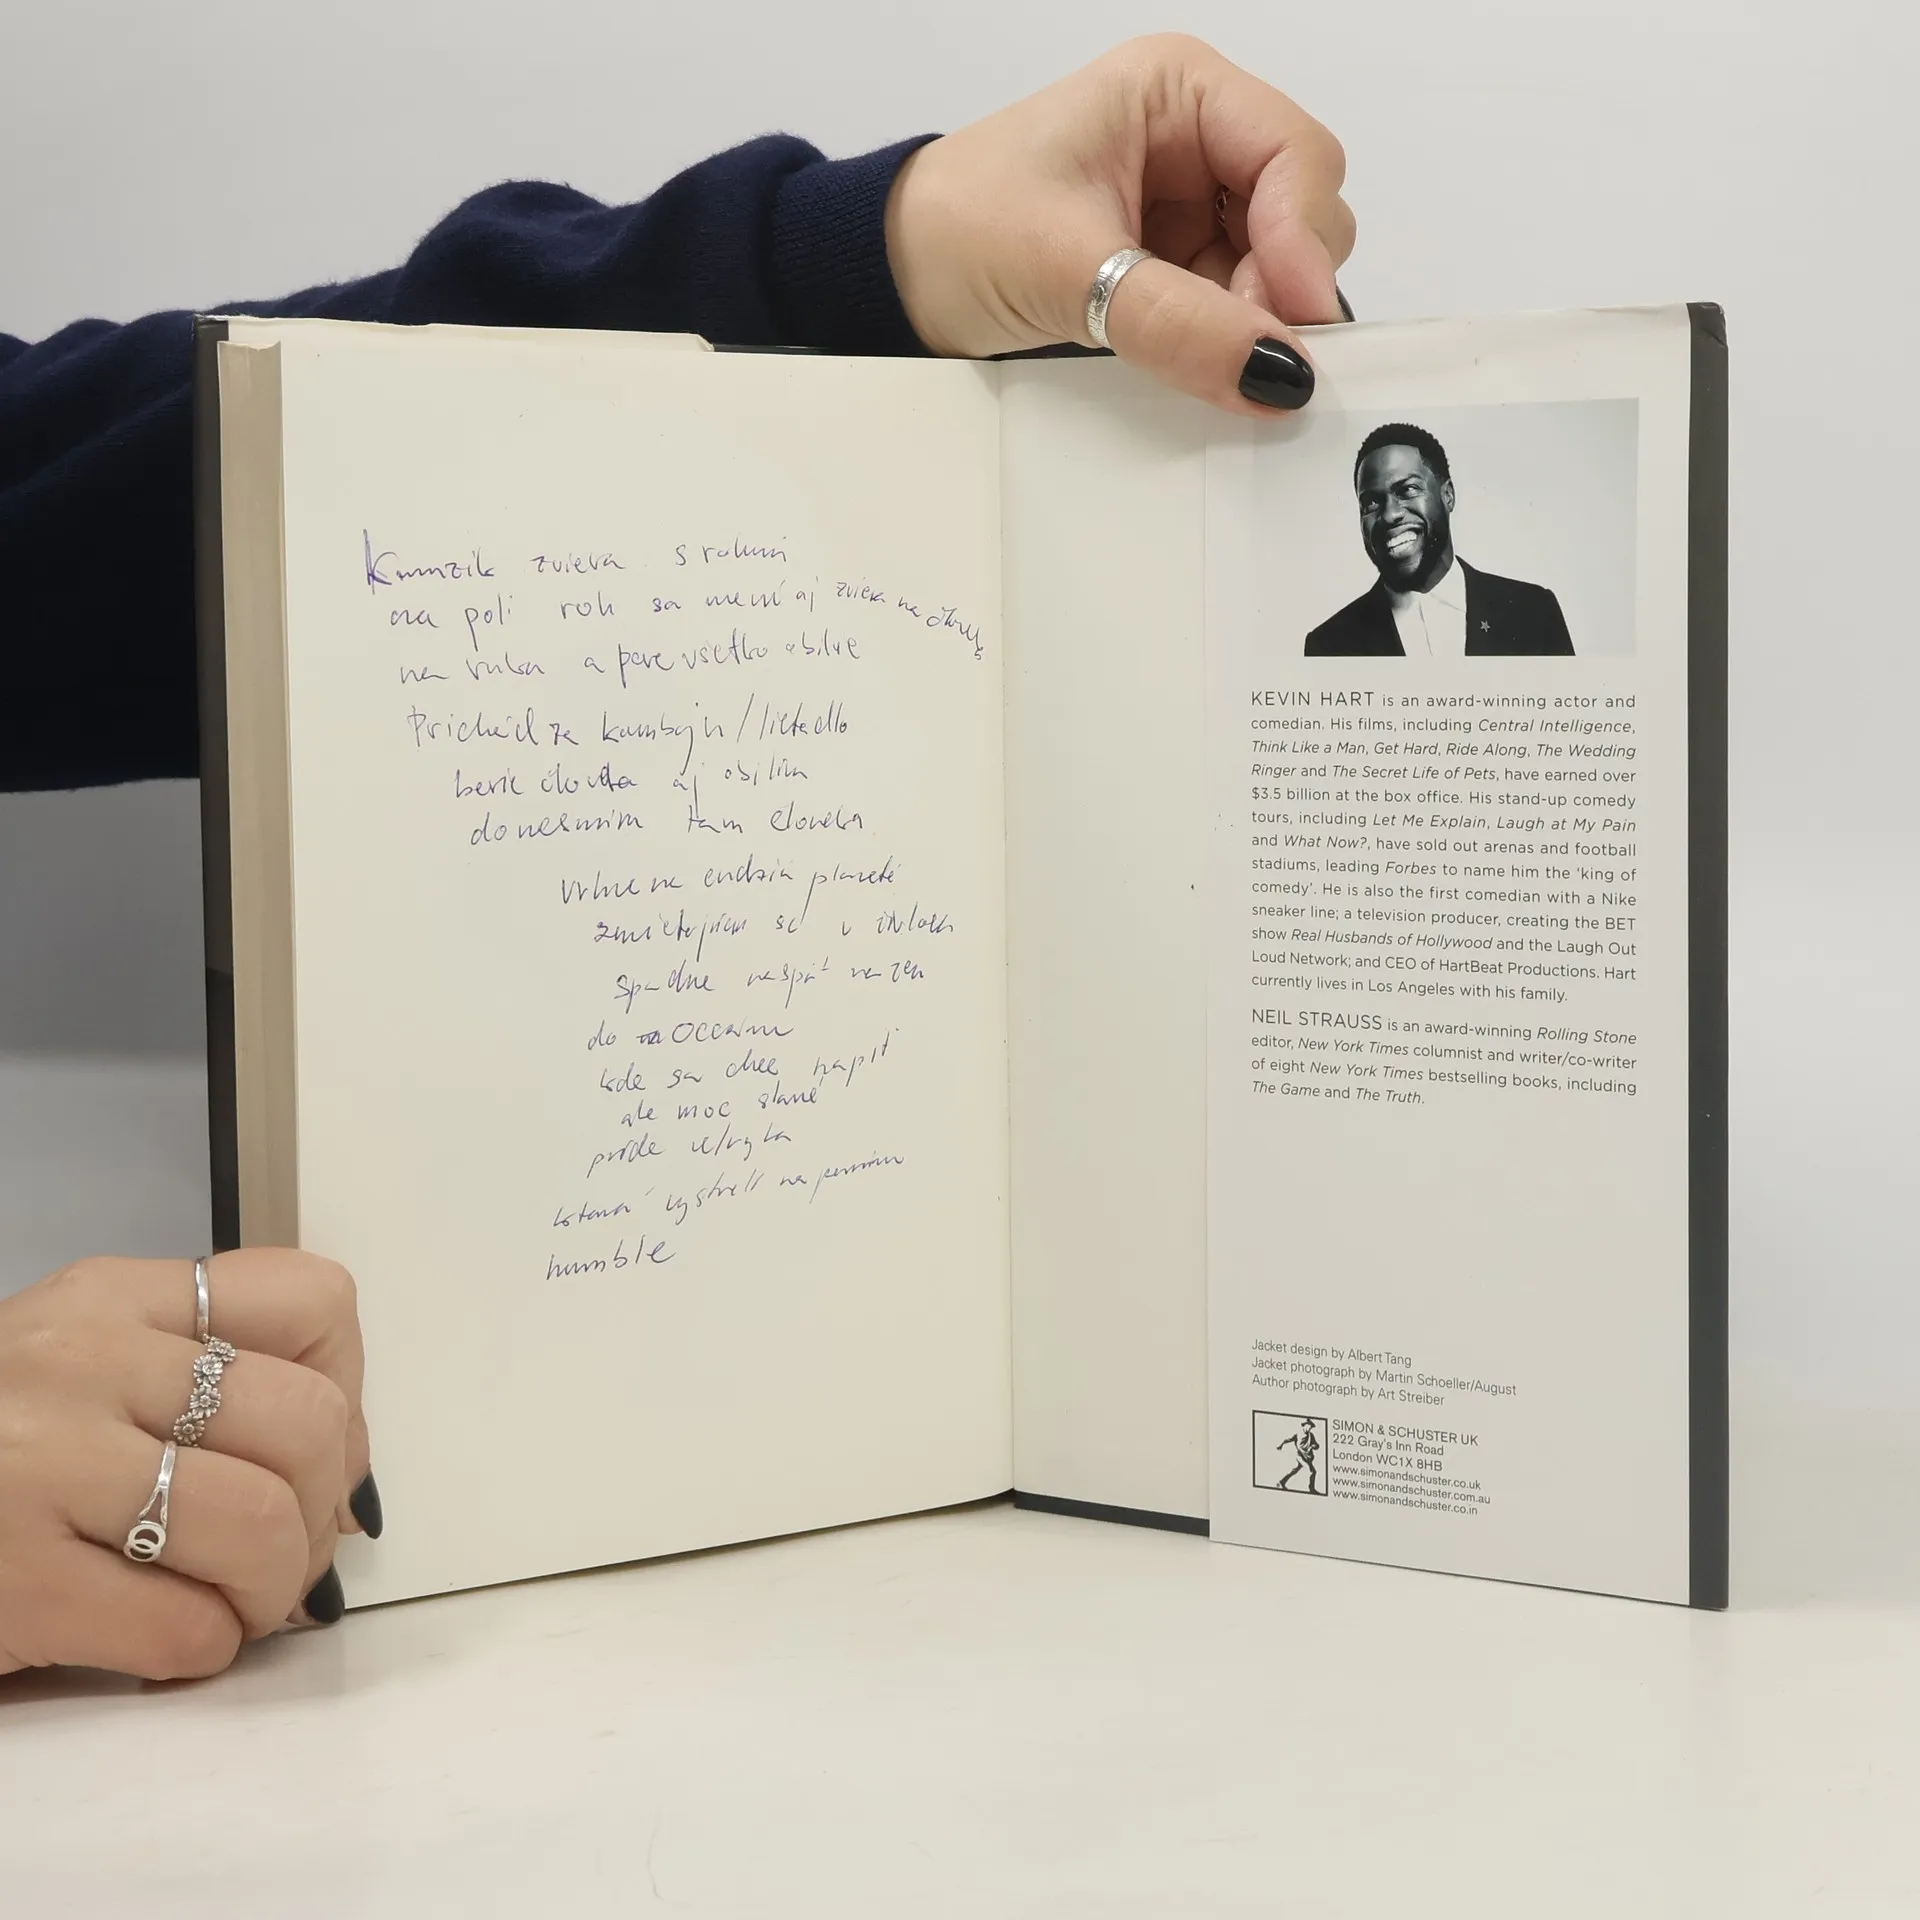 Kamzik zviera s rohmi
na poli roh sa mení aj zviera na
na a všetko
Prichádza kombajn / lietadlo
berie aj
tam
na planéte
sa v
spadne naspäť na
do
kde sa chce napiť
ale moc slané
príde
vystrelí na
humble
KEVIN HART is an award-winning actor and
comedian. His films, including Central Intelligence,
Think Like a Man, Get Hard, Ride Along, The Wedding
Ringer and The Secret Life of Pets, have earned over
$3.5 billion at the box office. His stand-up comedy
tours, including Let Me Explain, Laugh at My Pain
and What Now?, have sold out arenas and football
stadiums, leading Forbes to name him the ‘king of
comedy’. He is also the first comedian with a Nike
sneaker line; a television producer, creating the BET
show Real Husbands of Hollywood and the Laugh Out
Loud Network; and CEO of HartBeat Productions. Hart
currently lives in Los Angeles with his family.
NEIL STRAUSS is an award-winning Rolling Stone
editor, New York Times columnist and writer/co-writer
of eight New York Times bestselling books, including
The Game and The Truth.
Jacket design by Albert Tang
Jacket photograph by Martin Schoeller/August
Author photograph by Art Streiber
SIMON & SCHUSTER UK
222 Gray's Inn Road
London WC1X 8HB
www.simonandschuster.co.uk
www.simonandschuster.com.au
www.simonandschuster.co.in